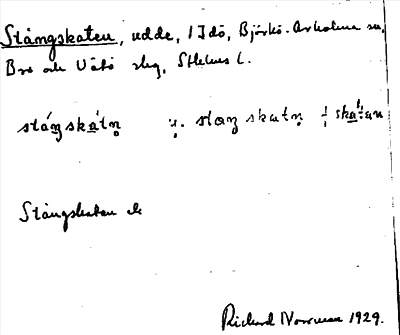 Stångskaten, udde, i Idö, Björkö-Arholma sn,
Bro och Vätö slg, Sthlms l.
stáŋskàtn̥ ų. staŋ skatn̥ ⸸ skatan
Stångskatan ek
Richard Norrman 1929.